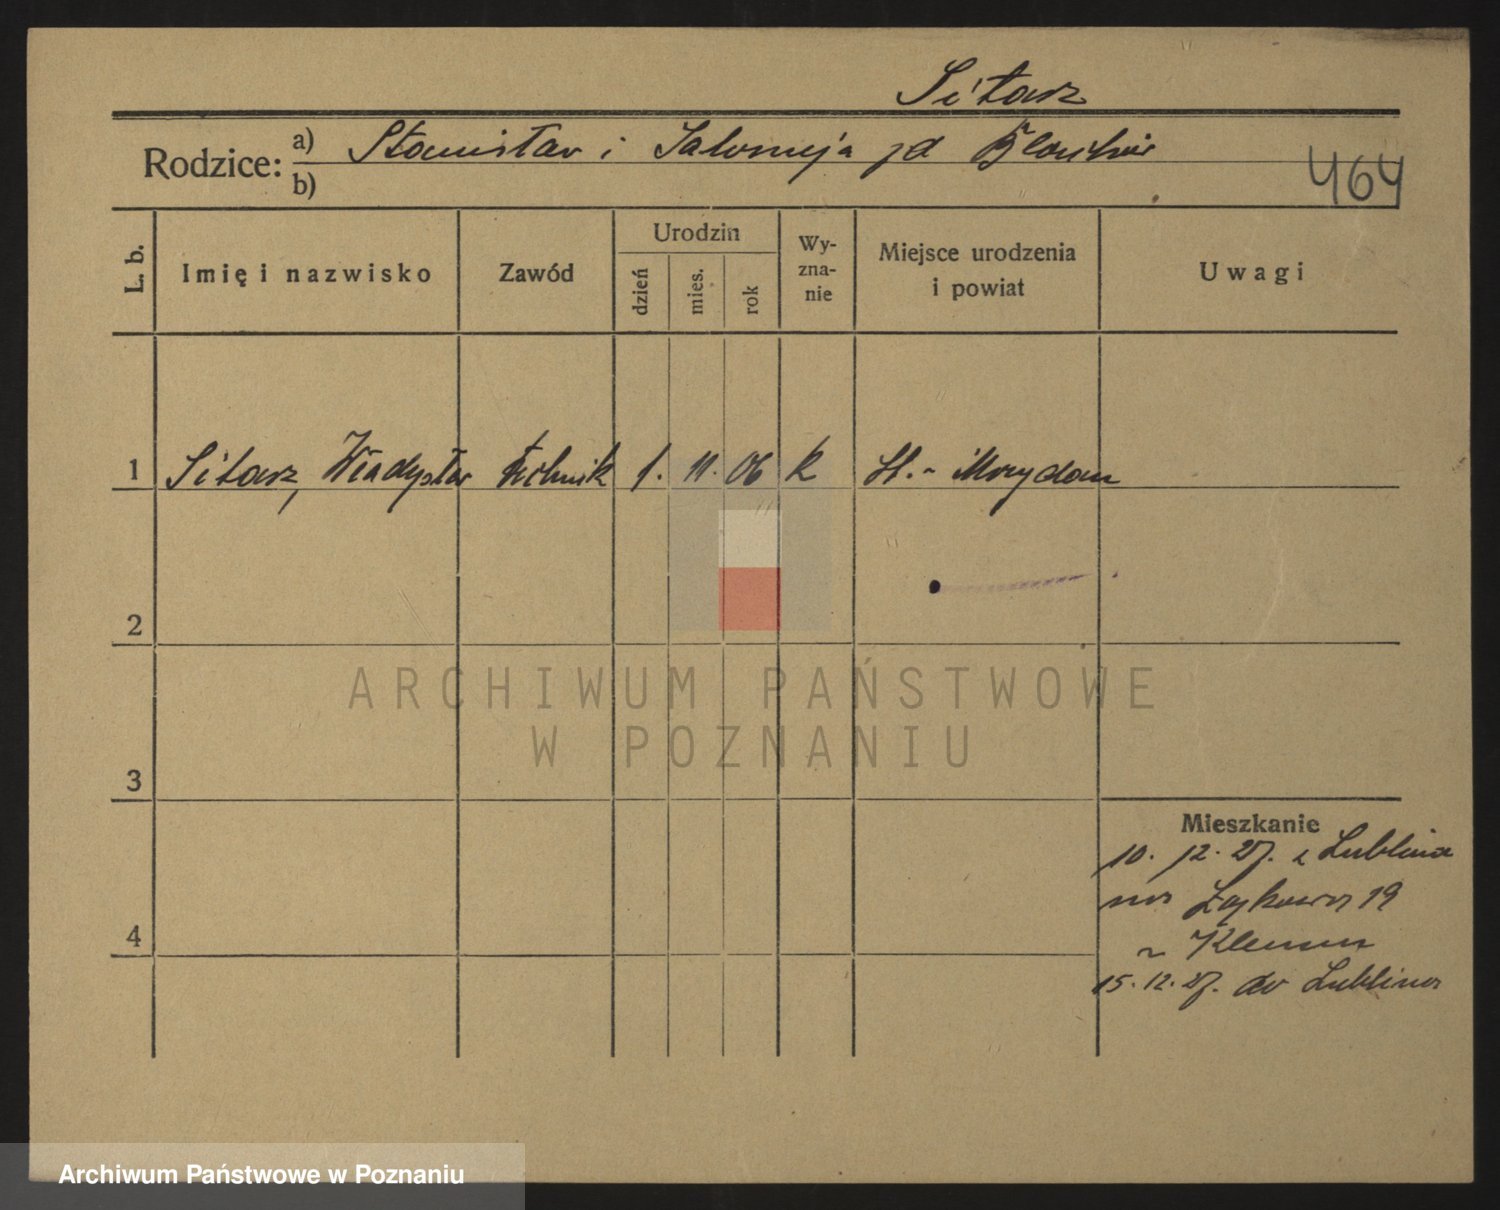 Sitarz
Rodzice: a) Stanisław i Salomeja
b)
464
L. b.
Imię i nazwisko
Zawód
Urodzin
dzień
mies.
rok
Wy-
zna-
nie
Miejsce urodzenia
i powiat
Uwagi
1 Sitarz, Władysław technik 1. 11. 06 k
2
3
4
ARCHIWUM PAŃSTWOWE
W POZNANIU
Mieszkanie
10. 12. 27. z Lublina
19
15. 12. 27. do Lublina
Archiwum Państwowe w Poznaniu